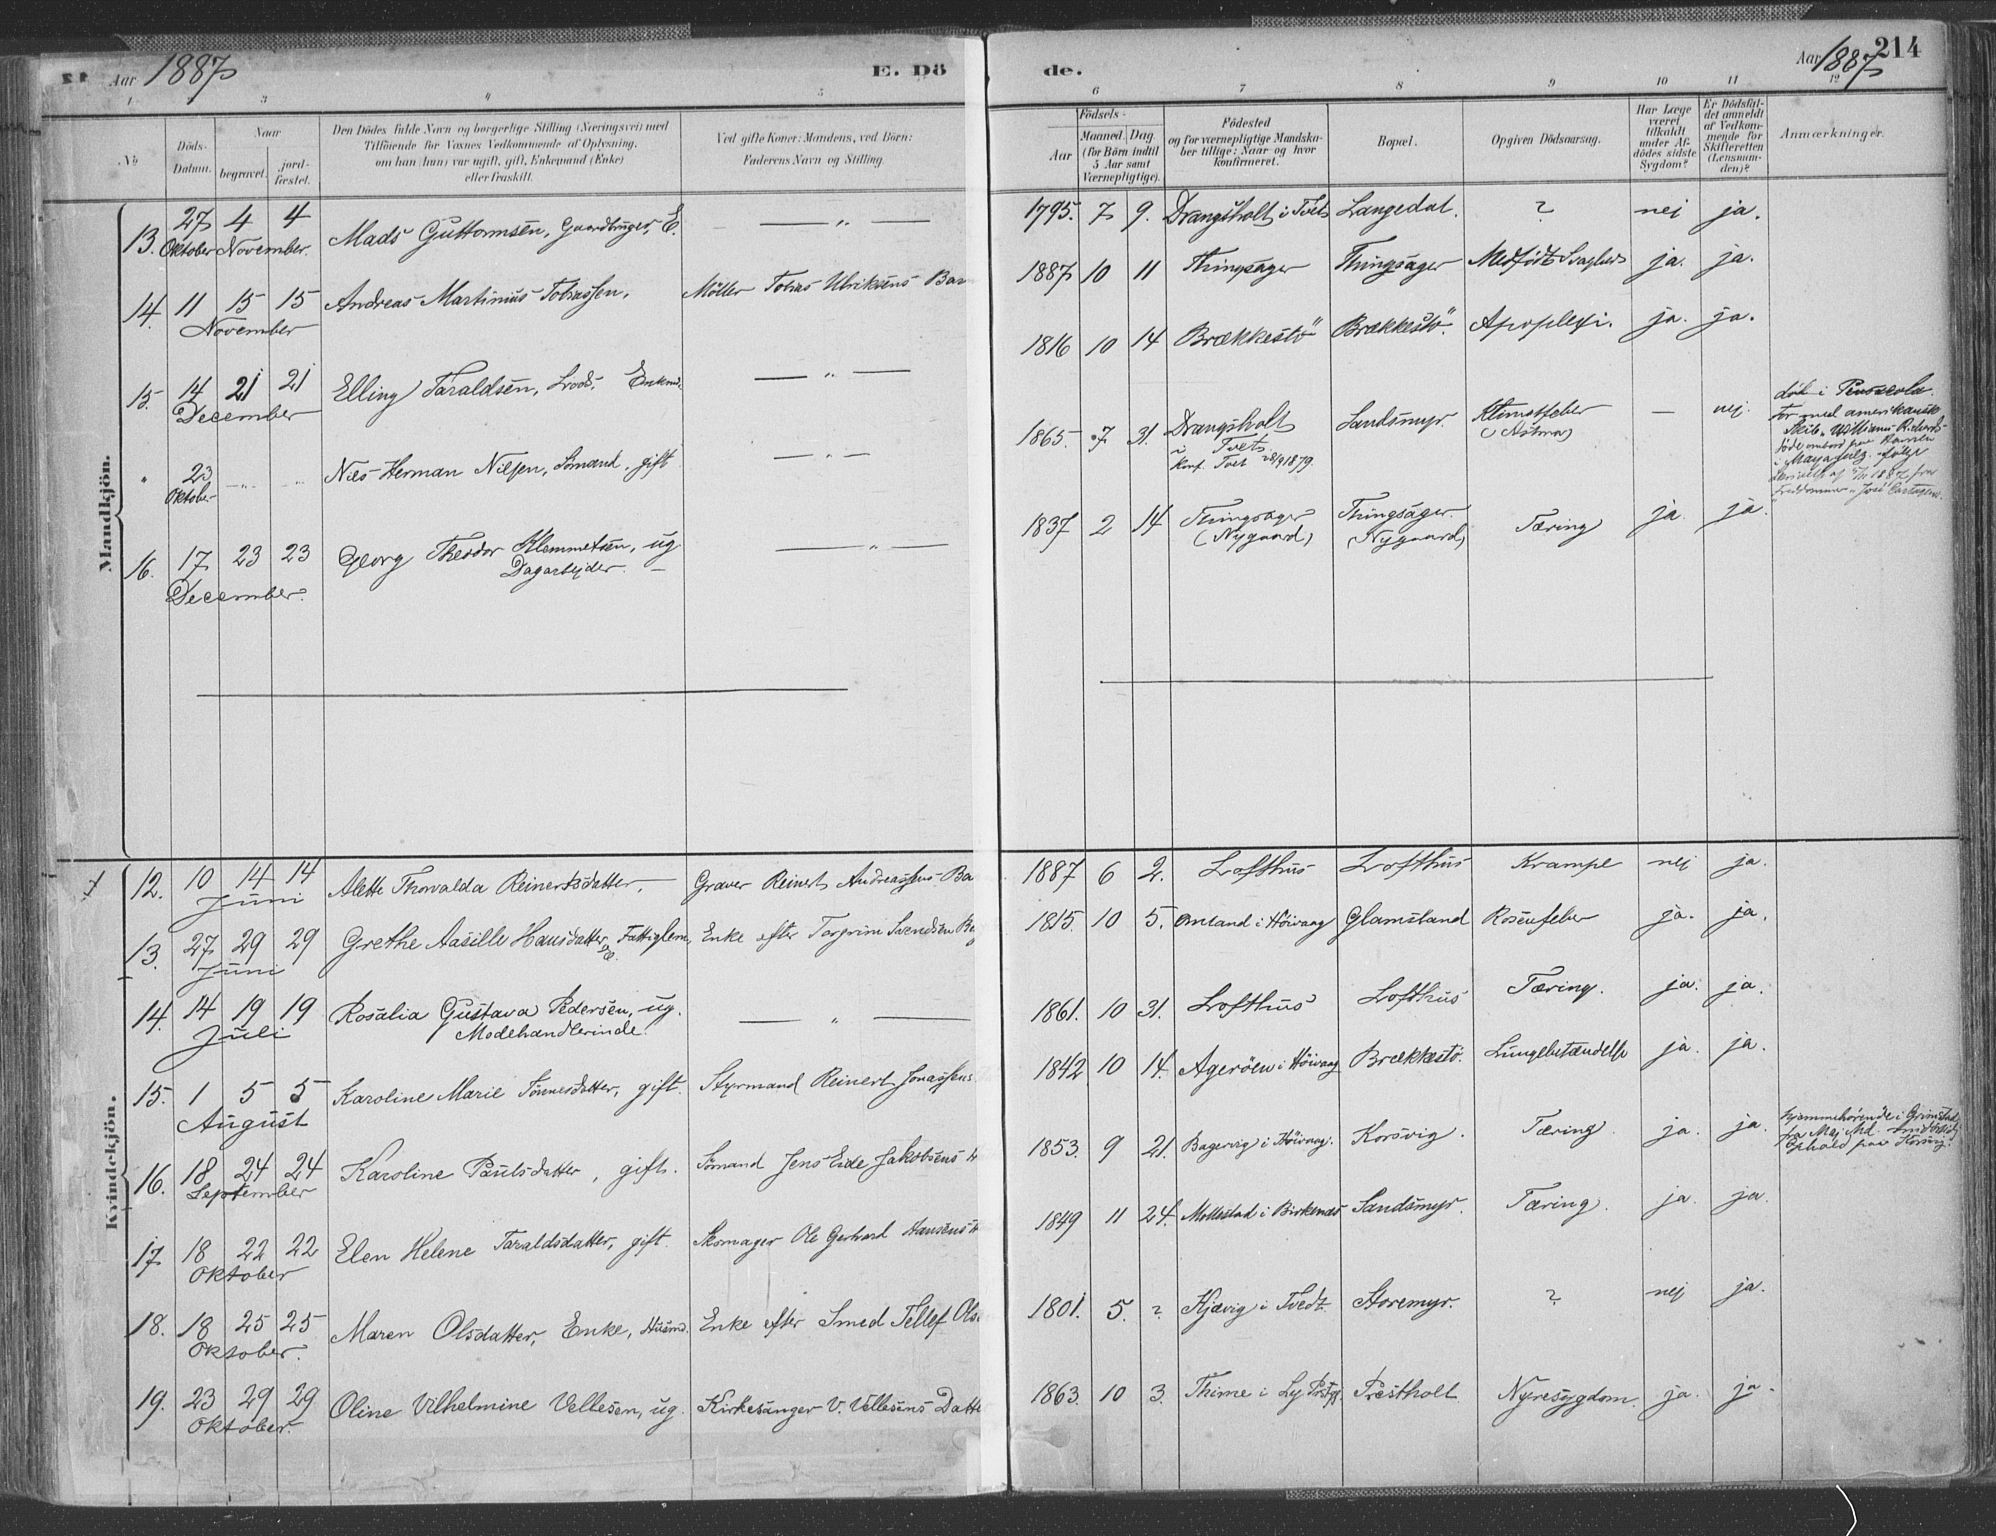 Aar 1887
E. Dö
de.
Aar 1887
214
1
3
4
5
6
7
8
9
10
11
12
No
Döds-Datum.
Naar
begravet.
jord-fæstet.
Den Dödes fulde Navn og borgerlige Stilling (Næringsvei) med
Tilföiende for Voxnes Vedkommende af Oplysning,
om han (hun) var ugift, gift, Enkemand (Enke)
eller fraskilt.
Ved gifte Koner: Mandens, ved Börn:
Faderens Navn og Stilling.
Födsels-
Aar
Maaned. Dag.
(for Börn indtil
5 Aar samt
Værnepligtige).
Födested
og for værnepligtige Mandska-
ber tillige: Naar og hvor
konfirmeret.
Bopæl.
Opgiven Dödsaarsag.
Har Læge
været
tilkaldt
under Af-
dödes sidste
Sygdom?
Er Dödsfal-
det anmeldt
af Vedkom-
mende for
Skifteretten
(Lensman-
den)?
Anmærkninger.
Mandkjön.
13. 27 Oktober 4 4 November. Mads Guttormsen, Gaardbruger, E. — " — 1795. 7 9. Drangsholt i Tveit Langedal. ? nej ja.
14. 11 15 15 November Andreas Martinius Tobiassen, Möller Tobias Ulriksens Bar 1887 10 11 Thingsager Thingsager Medfödt Svaghed ja. ja.
15. 14 21 21 December Elling Taraldsen, Lods, Enkem. — " — 1816 10 14 Brækkestö Brækkestö. Apoplexi. ja. ja.
" 23 Oktober — " — Nils Herman Nilsen, Sömand, gift — " — 1865. 7 31. Drangsholt i Tveit Konf. Tveit 28/9 1879. Sandsmyr. Klimatfeber (Astma) — nej.
död i Pensacola.
For med amerikansk
Skib "William Richards"
16. 17 23 23 December. Georg Theodor Klemmetsen, ug. Dagarbejder. — " — 1837 2 14 Thingsager (Nygaard) Thingsager. (Nygaard) Tæring ja. ja.
Kvindekjön.
12. 10 14 14 Juni Alette Thorvalda Reinertsdatter, Graver Reinert Andreassens Ba 1887 6 2. Lofthus Lofthus Krampe nej ja.
13. 27 29 29 Juni Grethe Aasille Hansdatter, E. Fattiglem, Enke efter Torgrim Svendsen 1815. 10 5. Omland i Höivaag Glamsland Rosenfeber ja. ja.
14. 14 19 19 Juli Rosalia Gustava Pedersen, ug. Modehandlerinde. — " — 1861. 10 31. Lofthus Lofthus Tæring. ja. ja.
15. 1 5 5 August Karoline Marie Tönnesdatter, gift. Styrmand Reinert Jonassens 1842 10 14. Ageröen i Höivaag Brækkestö. Lungebetændelse ja. ja.
16. 18 24 24 September Karoline Paulsdatter, gift. Sömand Jens Eide Jakobsens 1853. 9 21. Bagervig i Höivaag. Korsvig. Tæring. ja. ja.
hjemmehörende i Grimstad,
fra Maj Md. midlertidig
Ophold paa Korsvig.
17. 18 22 22 Oktober Elen Helene Taraldsdatter, gift. Skomager Ole Gerhard Hansens 1849 11 24. Mollestad i Birkenæs Sandsmyr. Tæring. ja. ja.
18. 18 25 25 Oktober. Maren Olsdatter, Enke, Husmd. Enke efter Smed Tellef Ols 1801. 5. ? Kjævig i Tvedt. Storemyr. ? nej ja.
19. 23 29 29 Oktober. Oline Vilhelmine Vellesen, ug. Kirkesanger V. Vellesens Datte 1863. 10 3. Thime i Ly Prstgj. Prestholt Nyresygdom. ja. ja.